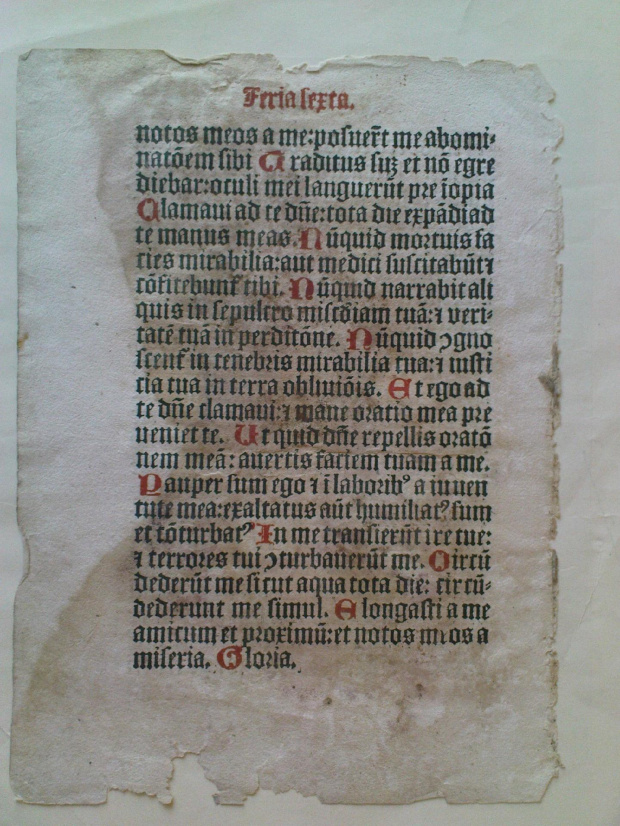 Feria sexta.
notos meos a me:posuer̃t me abomi⸗
natōem sibi Traditus suꝫ et nō egre
diebar:oculi mei languerūt pre īopia
Clamaui ad te dn̄e:tota die expādi ad
te manus meas. Nūquid mortuis fa
cies mirabilia:aut medici suscitabūt ⁊
cōfitebunt᷑ tibi. Nūquid narrabit ali
quis in sepulcro misc̄diam tuā:⁊ veri⸗
tatē tuā in perditōne. Nūquid ꝯgno
scent᷑ in tenebris mirabilia tua:⁊ iusti
cia tua in terra obliuiōis. Et ego ad
te dn̄e clamaui:⁊ mane oratio mea pre
ueniet te. Ut quid dn̄e repellis oratō
nem meā: auertis faciem tuam a me.
Pauper sum ego ⁊ ī laboribꝰ a iuuen
tute mea:exaltatus aūt humiliatꝰ sum
et cōturbatꝰ In me transierūt ire tue:
⁊ terrores tui ꝯturbauerūt me. Circū
dederūt me sicut aqua tota die: circū⸗
dederunt me simul. Elongasti a me
amicum et proximū:et notos meos a
miseria. Gloria.